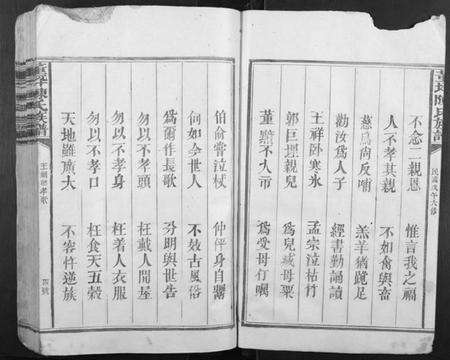 陳氏族譜
民國戊午六修
不念二親恩 惟言我之福
人不孝其親 不如禽與畜
慈烏尚反哺 羔羊猶跪足
勸汝爲人子 經書勤誦讀
王祥臥寒冰 孟宗泣枯竹
郭巨埋親兒 爲兒減母粟
董黯不入市 爲愛母仃囑
伯俞常泣杖 仲平身自鬻
何如今世人 不效古風俗
爲爾作長歌 分明與世告
勿以不孝頭 枉戴人間屋
勿以不孝身 枉着人衣服
勿以不孝口 枉食天五穀
天地雖廣大 不容忤逆族
陳氏族譜
孝歌
四號